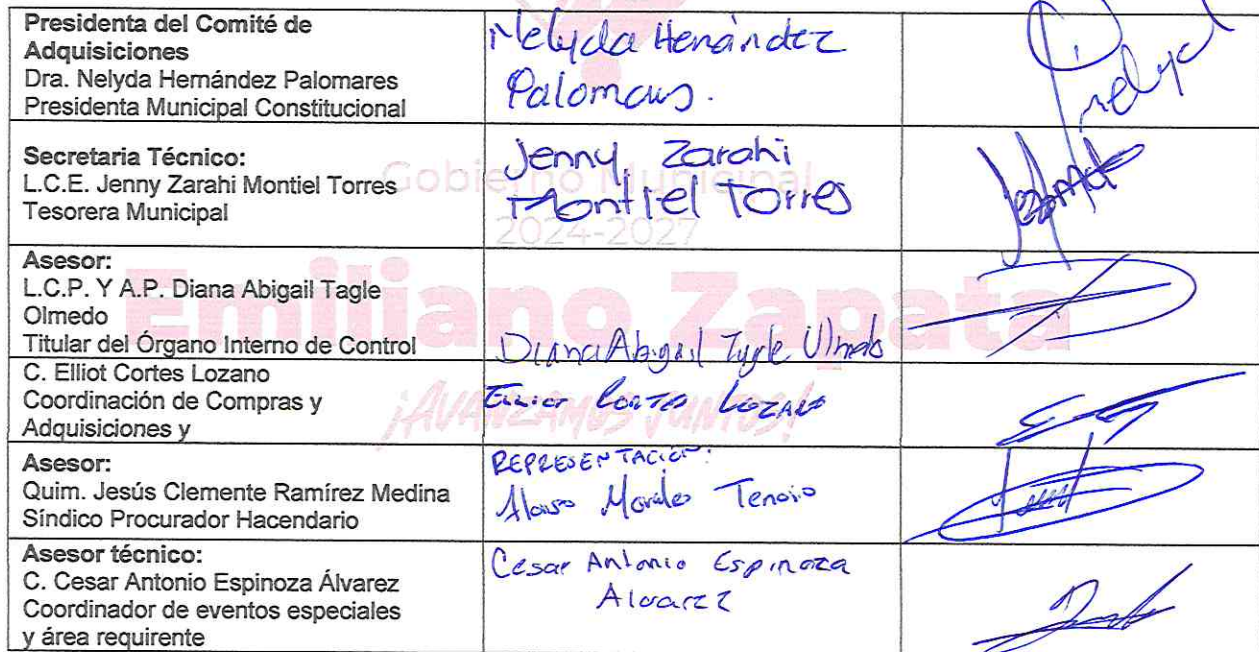 Presidenta del Comité de
Adquisiciones
Dra. Nelyda Hernández Palomares
Presidenta Municipal Constitucional
Nelyda Henández
Palomares.
nelyd
Secretaria Técnico:
L.C.E. Jenny Zarahi Montiel Torres
Tesorera Municipal
Jenny Zarahi
Montiel Torres
Gobierno Municipal
2024-2027
Emiliano Zapata
¡AVANZAMOS JUNTOS!
Asesor:
L.C.P. Y A.P. Diana Abigail Tagle
Olmedo
Titular del Órgano Interno de Control
Diana Abigail Tagle Olmedo
C. Elliot Cortes Lozano
Coordinación de Compras y
Adquisiciones y
Elliot Cortes Lozano
Asesor:
Quim. Jesús Clemente Ramírez Medina
Síndico Procurador Hacendario
REPRESENTACIÓN:
Morales Tenorio
Asesor técnico:
C. Cesar Antonio Espinoza Álvarez
Coordinador de eventos especiales
y área requirente
Cesar Antonio Espinoza
Alvarez